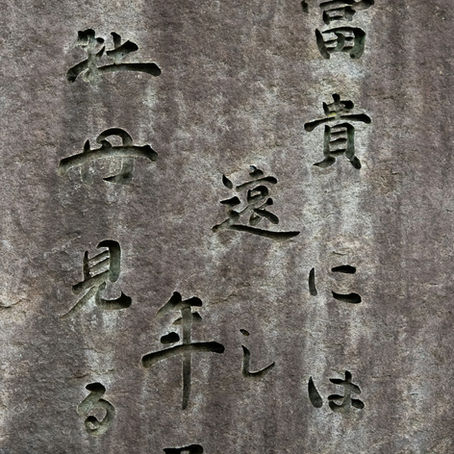 富貴には
遠し
年
牡丹見る